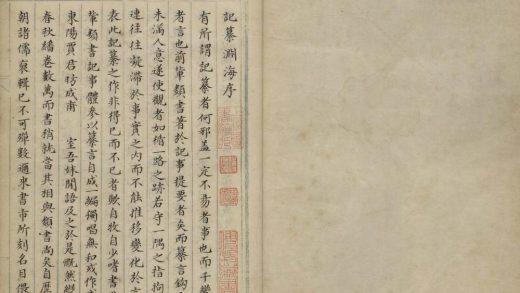 記纂淵海序
有所謂記纂者何邪蓋一定不易者事也而千變
者言也前軰類書著於記事提要者矣而纂言鈎
未滿人意遂使觀者如循一路之跡若守一隅之指拘
連往往凝滯於事實之內而不能推移變化於言
表此記纂之作非得已而不已者歟自牧自少嗜書
軰類書記事體參以纂言自成一編獨唱無和或作或
東陽賈君昉咸甫 室吾妹閒語及之於是慨然
春秋繙卷數萬而書稍就當其相與類書尚矣自歷
朝諸儒裒輯已不可殫數邇來書市所刻名目